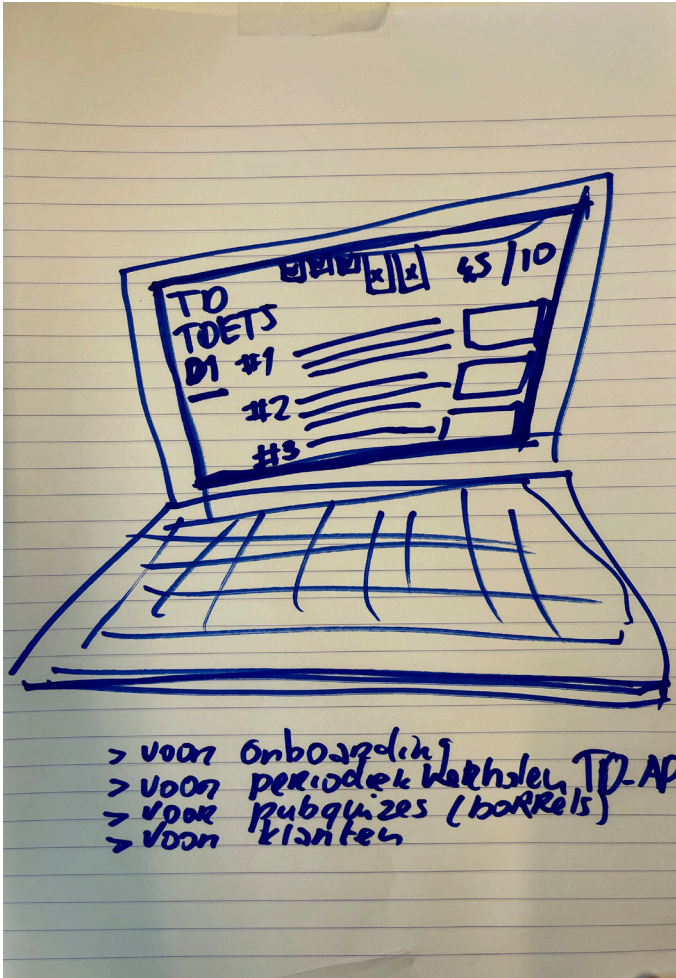 TD
TOETS
#1
#2
#3
/10
> voor onboarding
> voor periodiek herhalen TD-AP
> voor pubquizes (borrels)
> voor klanten